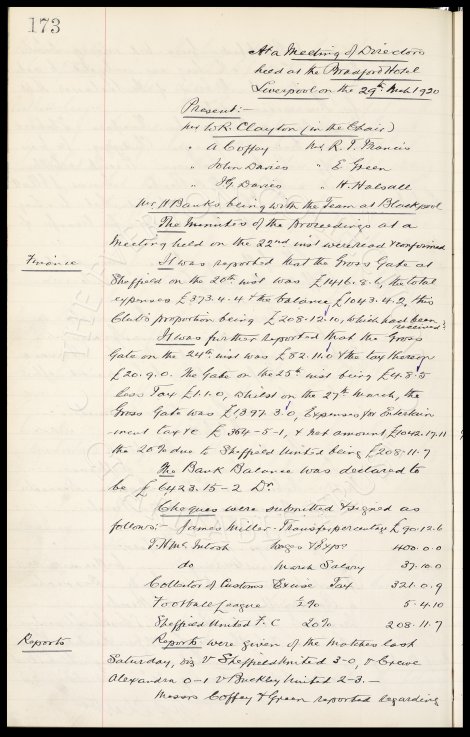 173
At a Meeting of Directors
held at the Bradford Hotel
Liverpool on the 29th Mch 1920
Present:-
Mr W.R. Clayton (in the Chair)
" A Coffey Mr R. T. Francis
" John Davies " E Green
" J G. Davies " H. Halsall
Mr H Banks being with the Team at Blackpool
The Minutes of the Proceedings at a
Meeting held on the 22nd inst were read & confirmed
Finance
It was reported that the Gross Gate at
Sheffield on the 20th inst was £1416.8.6, the total
expenses £373.4.4 & the balance £1043.4.2, this
Club's proportion being £208.12.10, which had been
received.
It was further reported that the Gross
Gate on the 24th inst was £82.11.0 & the tax thereon
£20.9.0. The Gate on the 25th inst being £4.8.5
less Tax £1.1.0, whilst on the 27th March, the
Gross Gate was £1397.3.0, Expenses for Entertain
-ment tax &c £354-5-1, & net amount £1042.17.11
the 20% due to Sheffield United being £208.11.7
The Bank Balance was declared to
be £6423.15-2 Dr.
Cheques were submitted & signed as
follows:- James Miller - Transfer percentage £90.12.6
T. H Mc Intosh Wages & Exps 400.0.0
do March Salary 37.10.0
Collector of Customs Excise Tax 321.0.9
Football League ½% 5.4.10
Sheffield United F.C 20% 208.11.7
Reports
Reports were given of the Matches last
Saturday, viz v Sheffield United 3-0, v Crewe
Alexandra 0-1 v Buckley United 2-3.-
Messrs Coffey & Green reported regarding